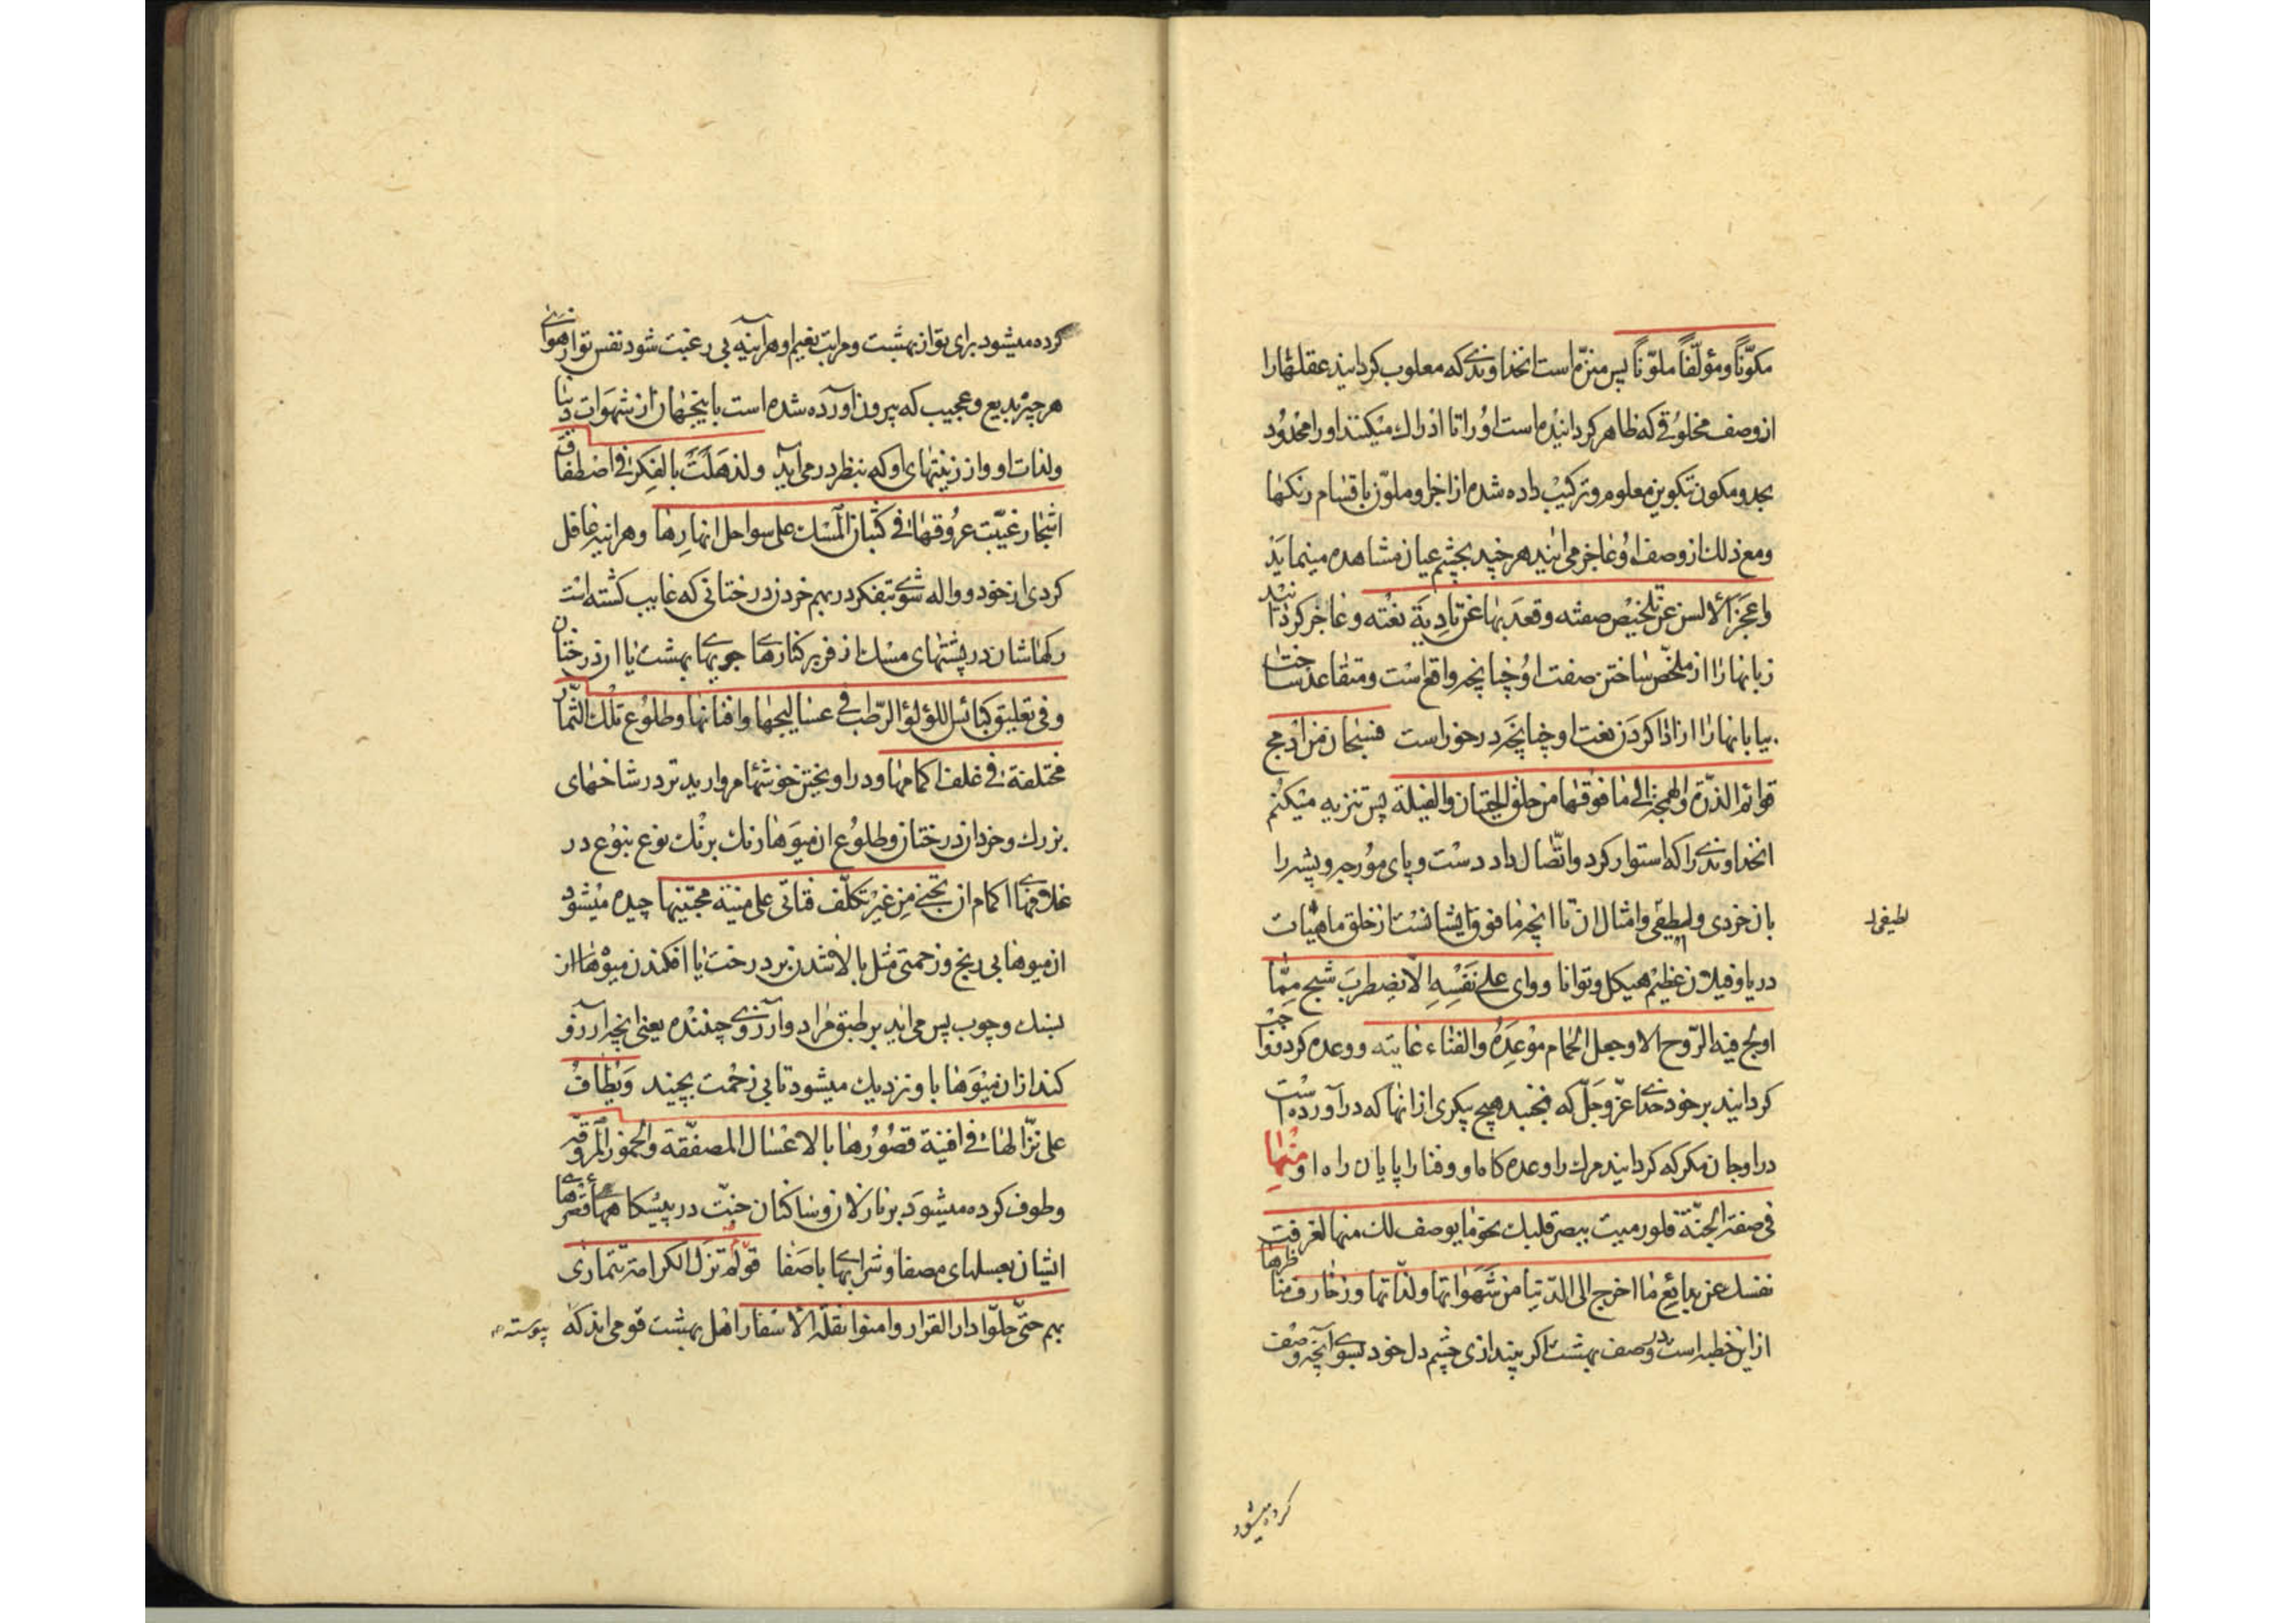 مکوّناً ومؤلّفاً ملوّناً پس منزّه است انخداوندی که مغلوب کردانید عقلها را
از وصف مخلوقی که ظاهر کردانیده است او را تا ادراك میکنند او را محدود
بحد ومکون بتکوین معلوم و ترکیب داده شده از اجزا وملوّن باقسام رنکها
ومع ذلك از وصف او عاجز می ایند هر چند بچشم عیان مشاهده مینماید
واعجز الالسن عن تلخیص صفته وقعد بها عن تادیة نعته وعاجز کردانید
زبانها را از ملخّص ساختن صفت او چنانچه واقع است ومتقاعد ساخت
بیابانها را از ادا کردن نعت او چنانچه در خور است فسبحان من ادمج
قوائم الذرّة والهمجة الی ما فوقها من خلق الحیتان والفیلة پس تنزیه میکنم
انخداوندی را که استوار کرد واتّصال داد دست وپای مورچه وپشه را
بان خردی ولطیفی وامثال ان تا انچه ما فوق ایشانست از خلق ماهیّات
لطیفی
دریا وفیلان عظیم هیکل وتوانا ووای علی نفسه الّا یضطرب شبح ممّا
اولج فیه الرّوح الا وجعل الحمام موعده والفناء غایته ووعده کرد وواجب
کردانید بر خود خدای عزّ وجلّ که نجنبد هیچ پیکری از انها که در آورده است
در او جان مکر که کردانید مرك را وعده کاه او وفنا را پایان راه او منها
فی صفة الجنّة فلو رمیت ببصر قلبك نحو ما یوصف لك منها لغرفت
نفسك عن بدائع ما اخرج الی الدّنیا من شهواتها ولذّاتها وزخارف مناظرها
از این خطبه است در وصف بهشت اکر بیندازی چشم دل خود بسوی آنچه وصف
کرده میشود
کرده میشود برای تو از بهشت ومراتب نعیم او هر آینه بی رغبت شود نفس تو از هوای
هر چیز بدیع وعجیب که بیرون اورده شده است باینجهان از شهوات دنیا
ولذات او واز زینتهای او که بنظر در می آید ولذهلت بالفکر فی اصطفاق
اشجار غیّبت عروقها فی کثبان المسك علی سواحل انهارها وهر اینه غافل
کردی از خود وواله شوی بتفکر در بهم خردن درختانی که غایب کشته است
رکهاشان در پشتهای مسك اذفر بر کنارهای جویهای بهشت یا از درختان
وفی تعلیق کبائس اللؤلؤ الرّطب فی عسالیجها وافنانها وطلوع تلك الثّمار
مختلفة فی غلف اکمامها ودر اویختن خوشهٔ مروارید تر در شاخهای
بزرك وخرد ان درختان وطلوع ان میوها رنك برنك نوع بنوع در
غلافهای اکمام ان تجنی من غیر تکلّف فتاتی علی منیة مجتنیها چیده میشود
ان میوها بی رنج وزحمتی مثل بالا شدن بر درخت یا افکندن میوها از
بسنك وچوب پس می اید بر طبق مراد وآرزوی چیننده یعنی انچه را آرزو
کند از ان میوها باو نزدیك میشود تا بی زحمت بچیند ویطاف
علی نزّالها فی افنیة قصورها بالاعسال المصفّقة والخمور المروّقة
وطوف کرده میشود بر نازلان وساکنان جنّت در پیشکاههای قصرهای
ایشان بعسلهای مصفا وشرابهای باصفا قوم لم تزل الکرامة تتمادی
بهم حتّی حلّوا دار القرار وامنوا نقلة الاسفار اهل بهشت قومی اند که
پیوسته